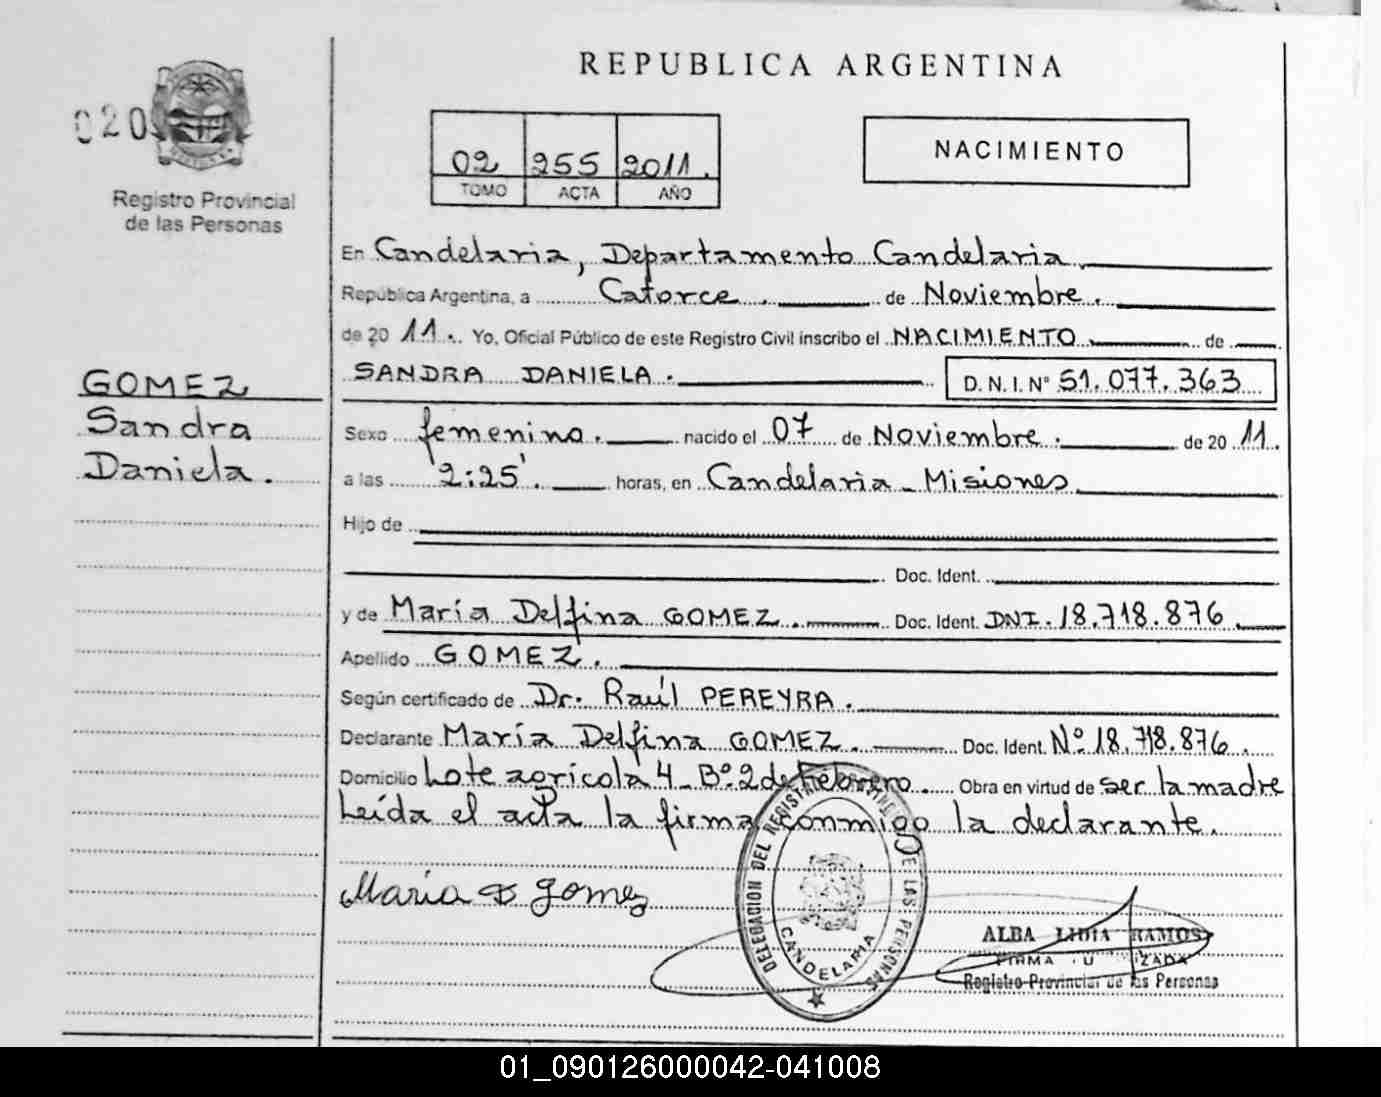 REPUBLICA ARGENTINA
020
Registro Provincial
de las Personas
02 255 2011.
TOMO ACTA AÑO
NACIMIENTO
En Candelaria, Departamento Candelaria.
República Argentina, a Catorce. de Noviembre.
de 20 11. Yo, Oficial Público de este Registro Civil inscribo el NACIMIENTO de
SANDRA DANIELA. D. N. I. Nº 51.077.363
GOMEZ
Sandra
Daniela.
Sexo femenino. nacido el 07 de Noviembre. de 20 11.
a las 2:25'. horas, en Candelaria - Misiones
Hijo de
Doc. Ident.
y de María Delfina GOMEZ. Doc. Ident. DNI. 18.718.876.
Apellido GOMEZ.
Según certificado de Dr. Raúl PEREYRA.
Declarante María Delfina GOMEZ. Doc. Ident. Nº 18.718.876.
Domicilio Lote agrícola 4 - Bº 2 de Febrero. Obra en virtud de ser la madre
Leída el acta la firma conmigo la declarante.
María D Gomez
DELEGACION DEL REGISTRO PROVINCIAL DE LAS PERSONAS
CANDELARIA
ALBA LIDIA RAMOS
FIRMA
Registro Provincial de las Personas
01_090126000042-041008